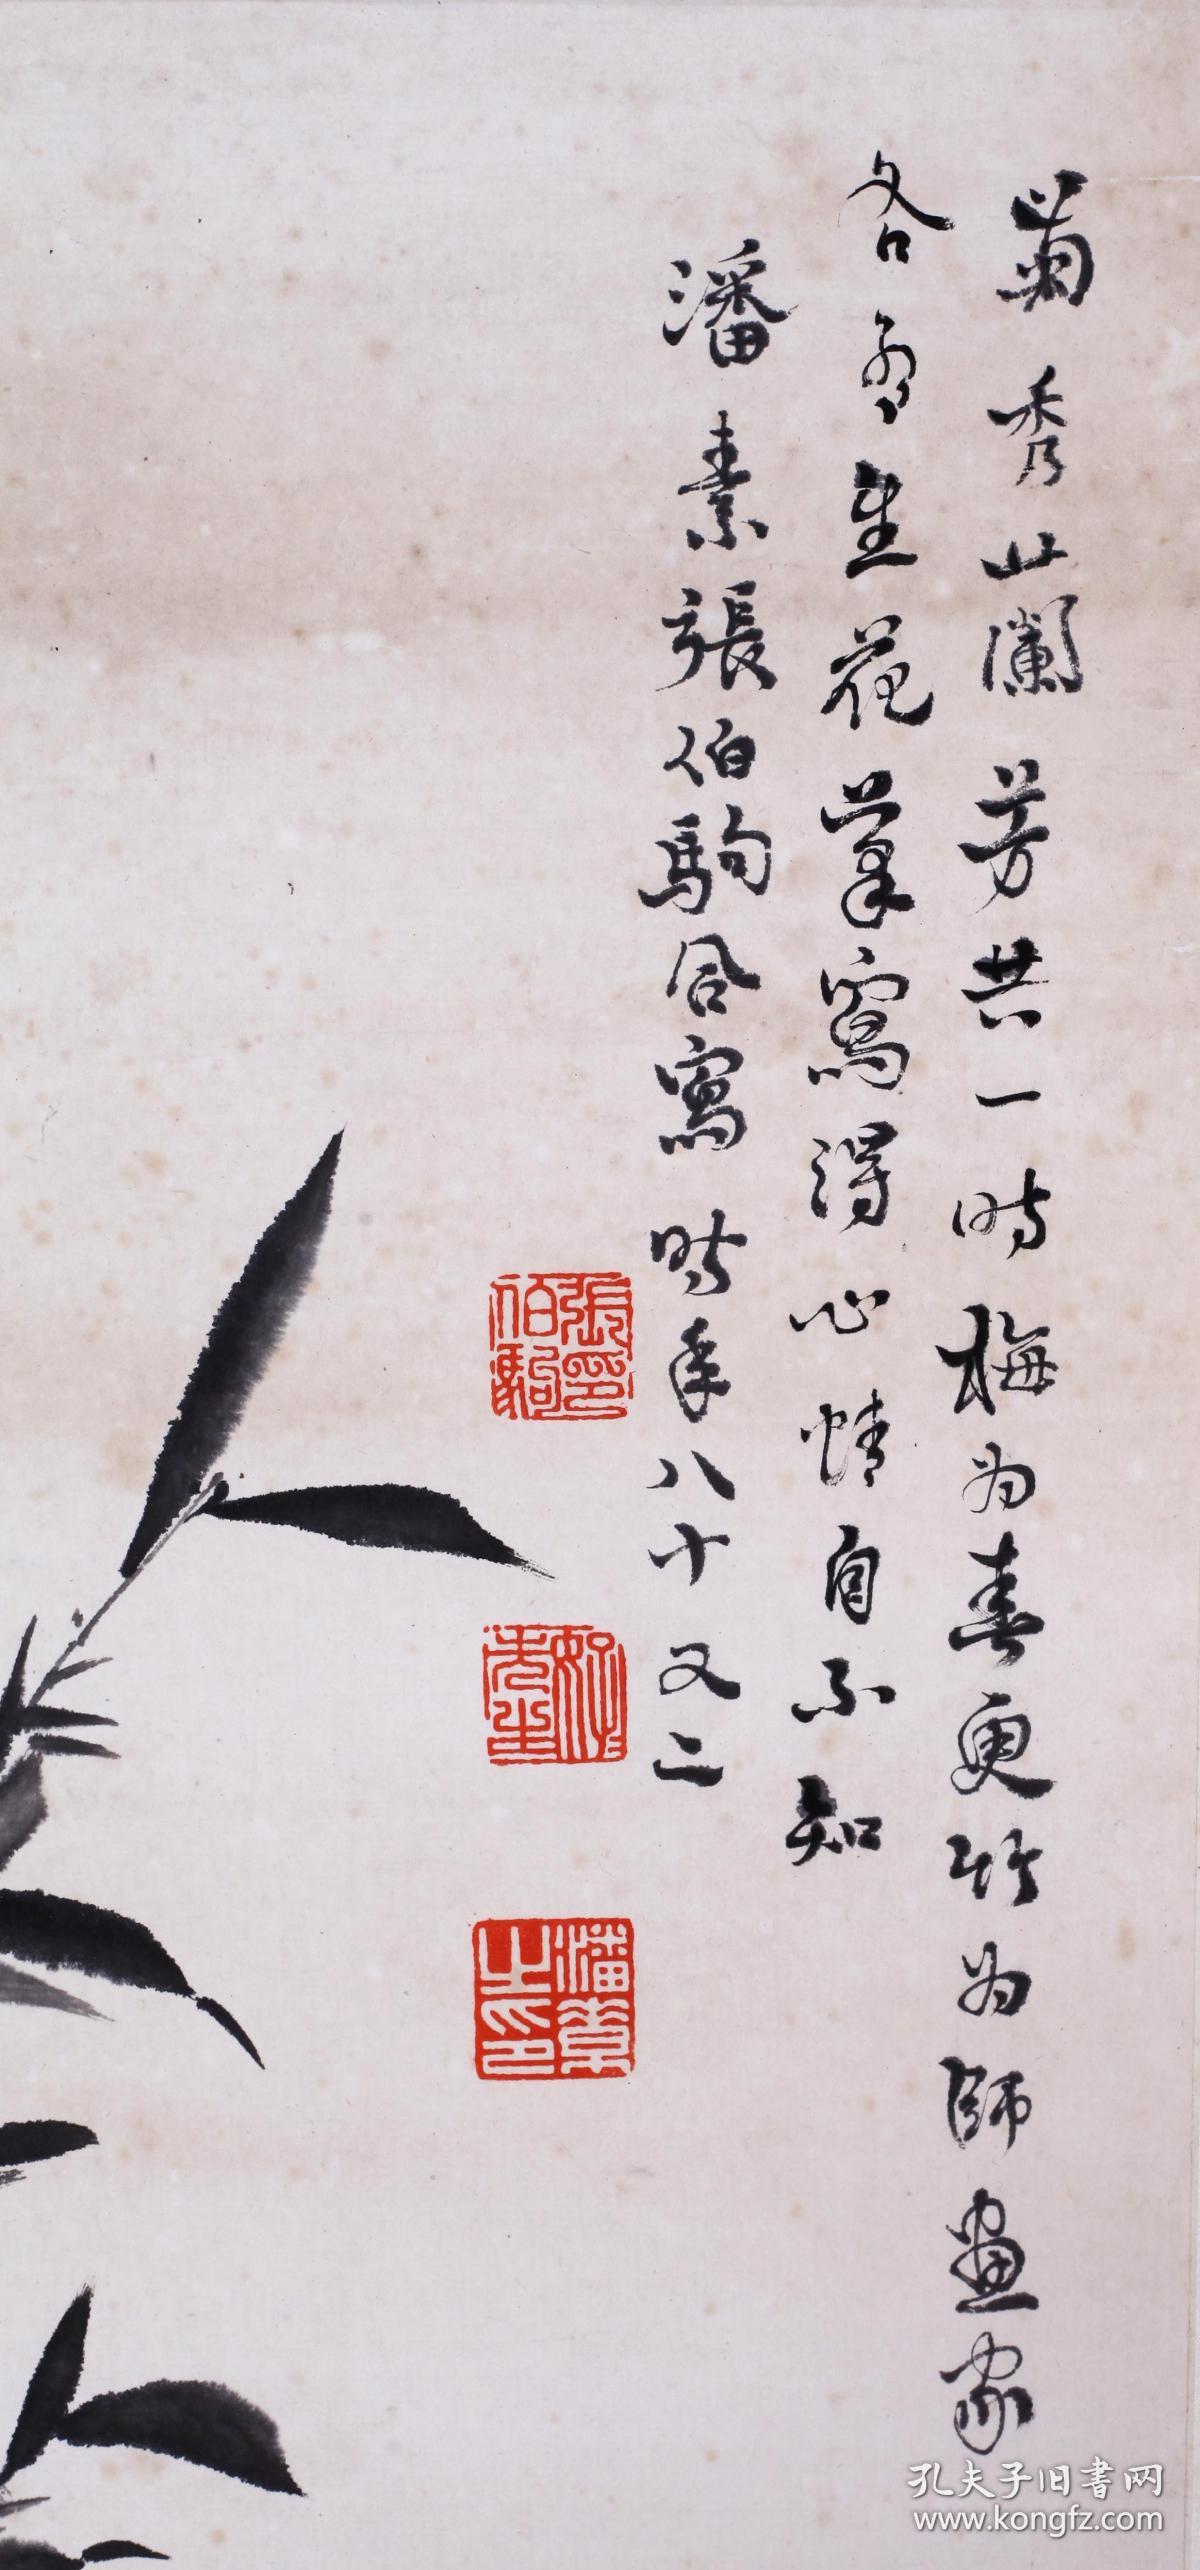 菊秀蘭芳共一時梅为春更竹为師畫家
各有生花筆寫得心情自不知
潘素張伯駒合寫時年八十又二
張伯駒印
好好先生
潘素之印
孔夫子旧书网
www.kongfz.com